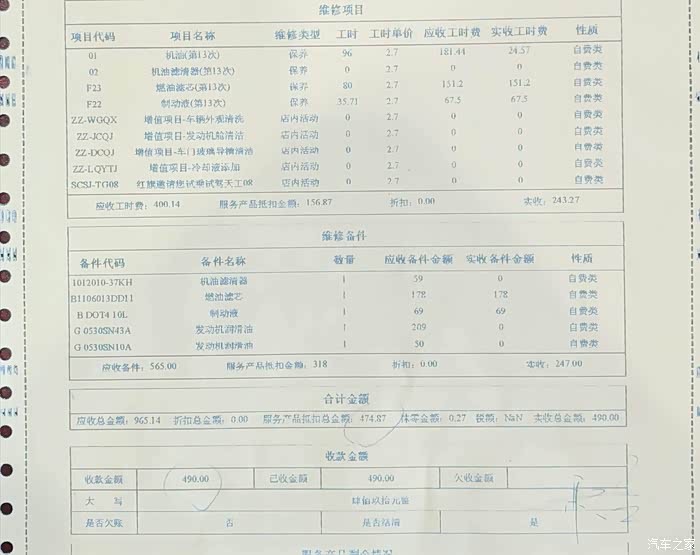 维修项目
项目代码 项目名称 维修类型 工时 工时单价 应收工时费 实收工时费 性质
01 机油(第13次) 保养 96 2.7 181.44 24.57 自费类
02 机油滤清器(第13次) 保养 0 2.7 0 0 自费类
F23 燃油滤芯(第13次) 保养 80 2.7 151.2 151.2 自费类
F22 制动液(第13次) 保养 35.71 2.7 67.5 67.5 自费类
ZZ-WGQX 增值项目-车辆外观清洗 店内活动 0 2.7 0 0 自费类
ZZ-JCQJ 增值项目-发动机舱清洁 店内活动 0 2.7 0 0 自费类
ZZ-DCQJ 增值项目-车门玻璃导槽清洁 店内活动 0 2.7 0 0 自费类
ZZ-LQYTJ 增值项目-冷却液添加 店内活动 0 2.7 0 0 自费类
SCSJ-TG08 红旗邀请您试乘试驾天工08 店内活动 0 2.7 0 0 自费类
应收工时费: 400.14 服务产品抵扣金额: 156.87 折扣: 0.00 实收: 243.27
维修备件
备件代码 备件名称 数量 应收备件金额 实收备件金额 性质
1012010-37KH 机油滤清器 1 59 0 自费类
B1106013DD11 燃油滤芯 1 178 178 自费类
B DOT4 10L 制动液 1 69 69 自费类
G 0530SN43A 发动机润滑油 1 209 0 自费类
G 0530SN10A 发动机润滑油 1 50 0 自费类
应收备件: 565.00 服务产品抵扣金额: 318 折扣: 0.00 实收: 247.00
合计金额
应收总金额: 965.14 折扣总金额: 0.00 服务产品抵扣总金额: 474.87 抹零金额: 0.27 税额: NaN 实收总金额: 490.00
收款金额
收款金额 490.00 已收金额 490.00 欠收金额
大 写 肆佰玖拾元整
是否欠账 否 是否结清 是
服务产品剩余情况
汽车之家